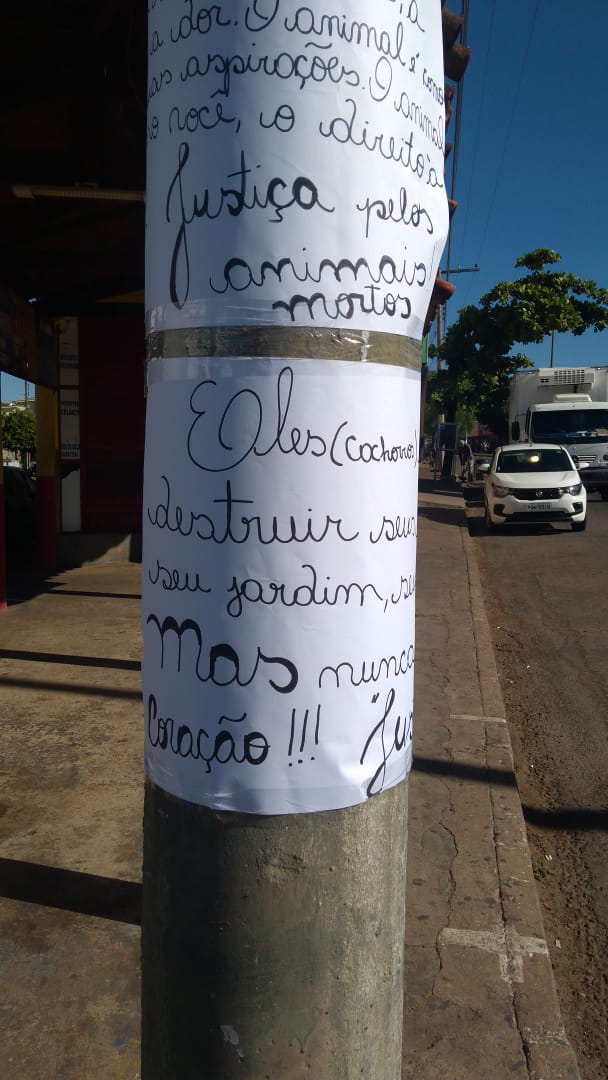 a dor. O animal é como
aspirações. O animal
você, o direito à
Justiça pelos
animais
mortos
Eles (cachorros)
destruir seus
seu jardim, se
Mas nunca
Coração !!! "Jus